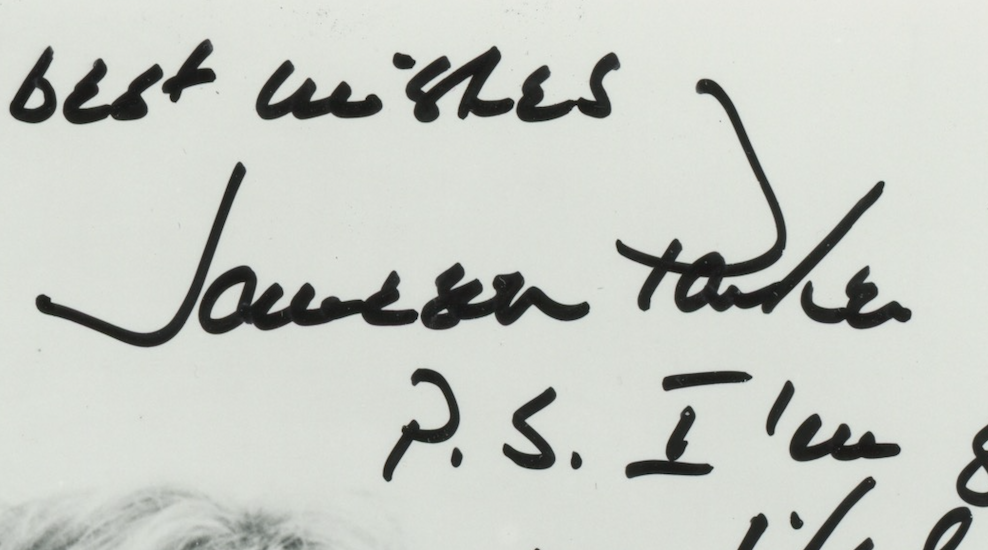 best wishes
Jameson Parker
P.S. I'm